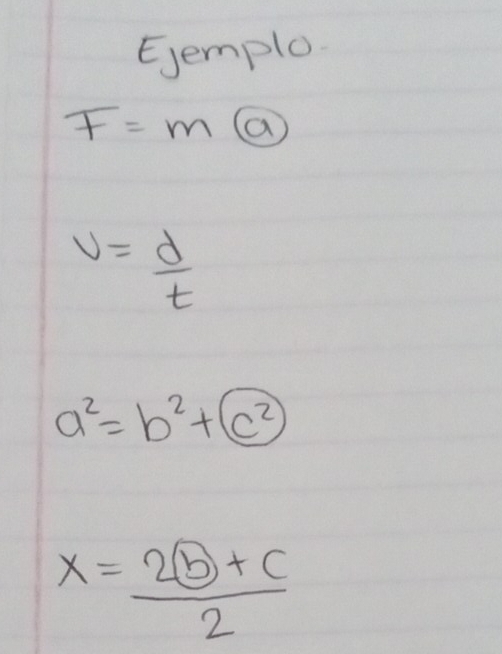 Ejemplo.
F = m a
v = d
t
a² = b² + c²
x = 2b + c
2